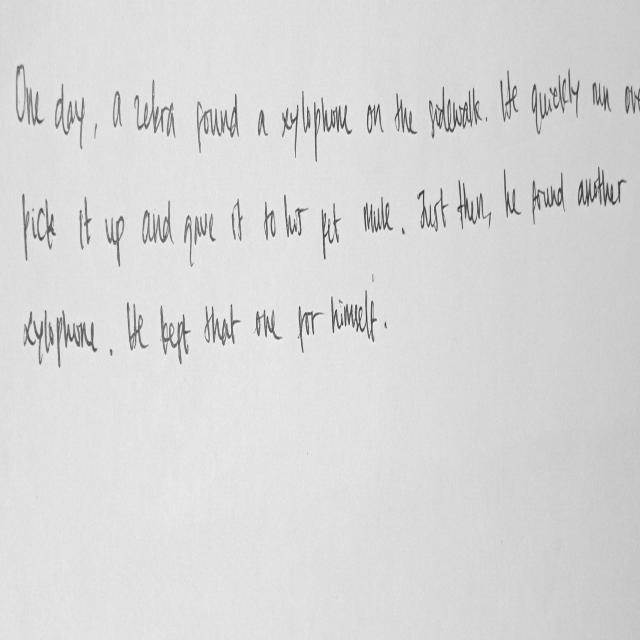 One day, a zebra found a xylophone on the sidewalk. He quickly run
pick it up and gave it to his pet mule. Just then, he found another
xylophone. He kept that one for himself.